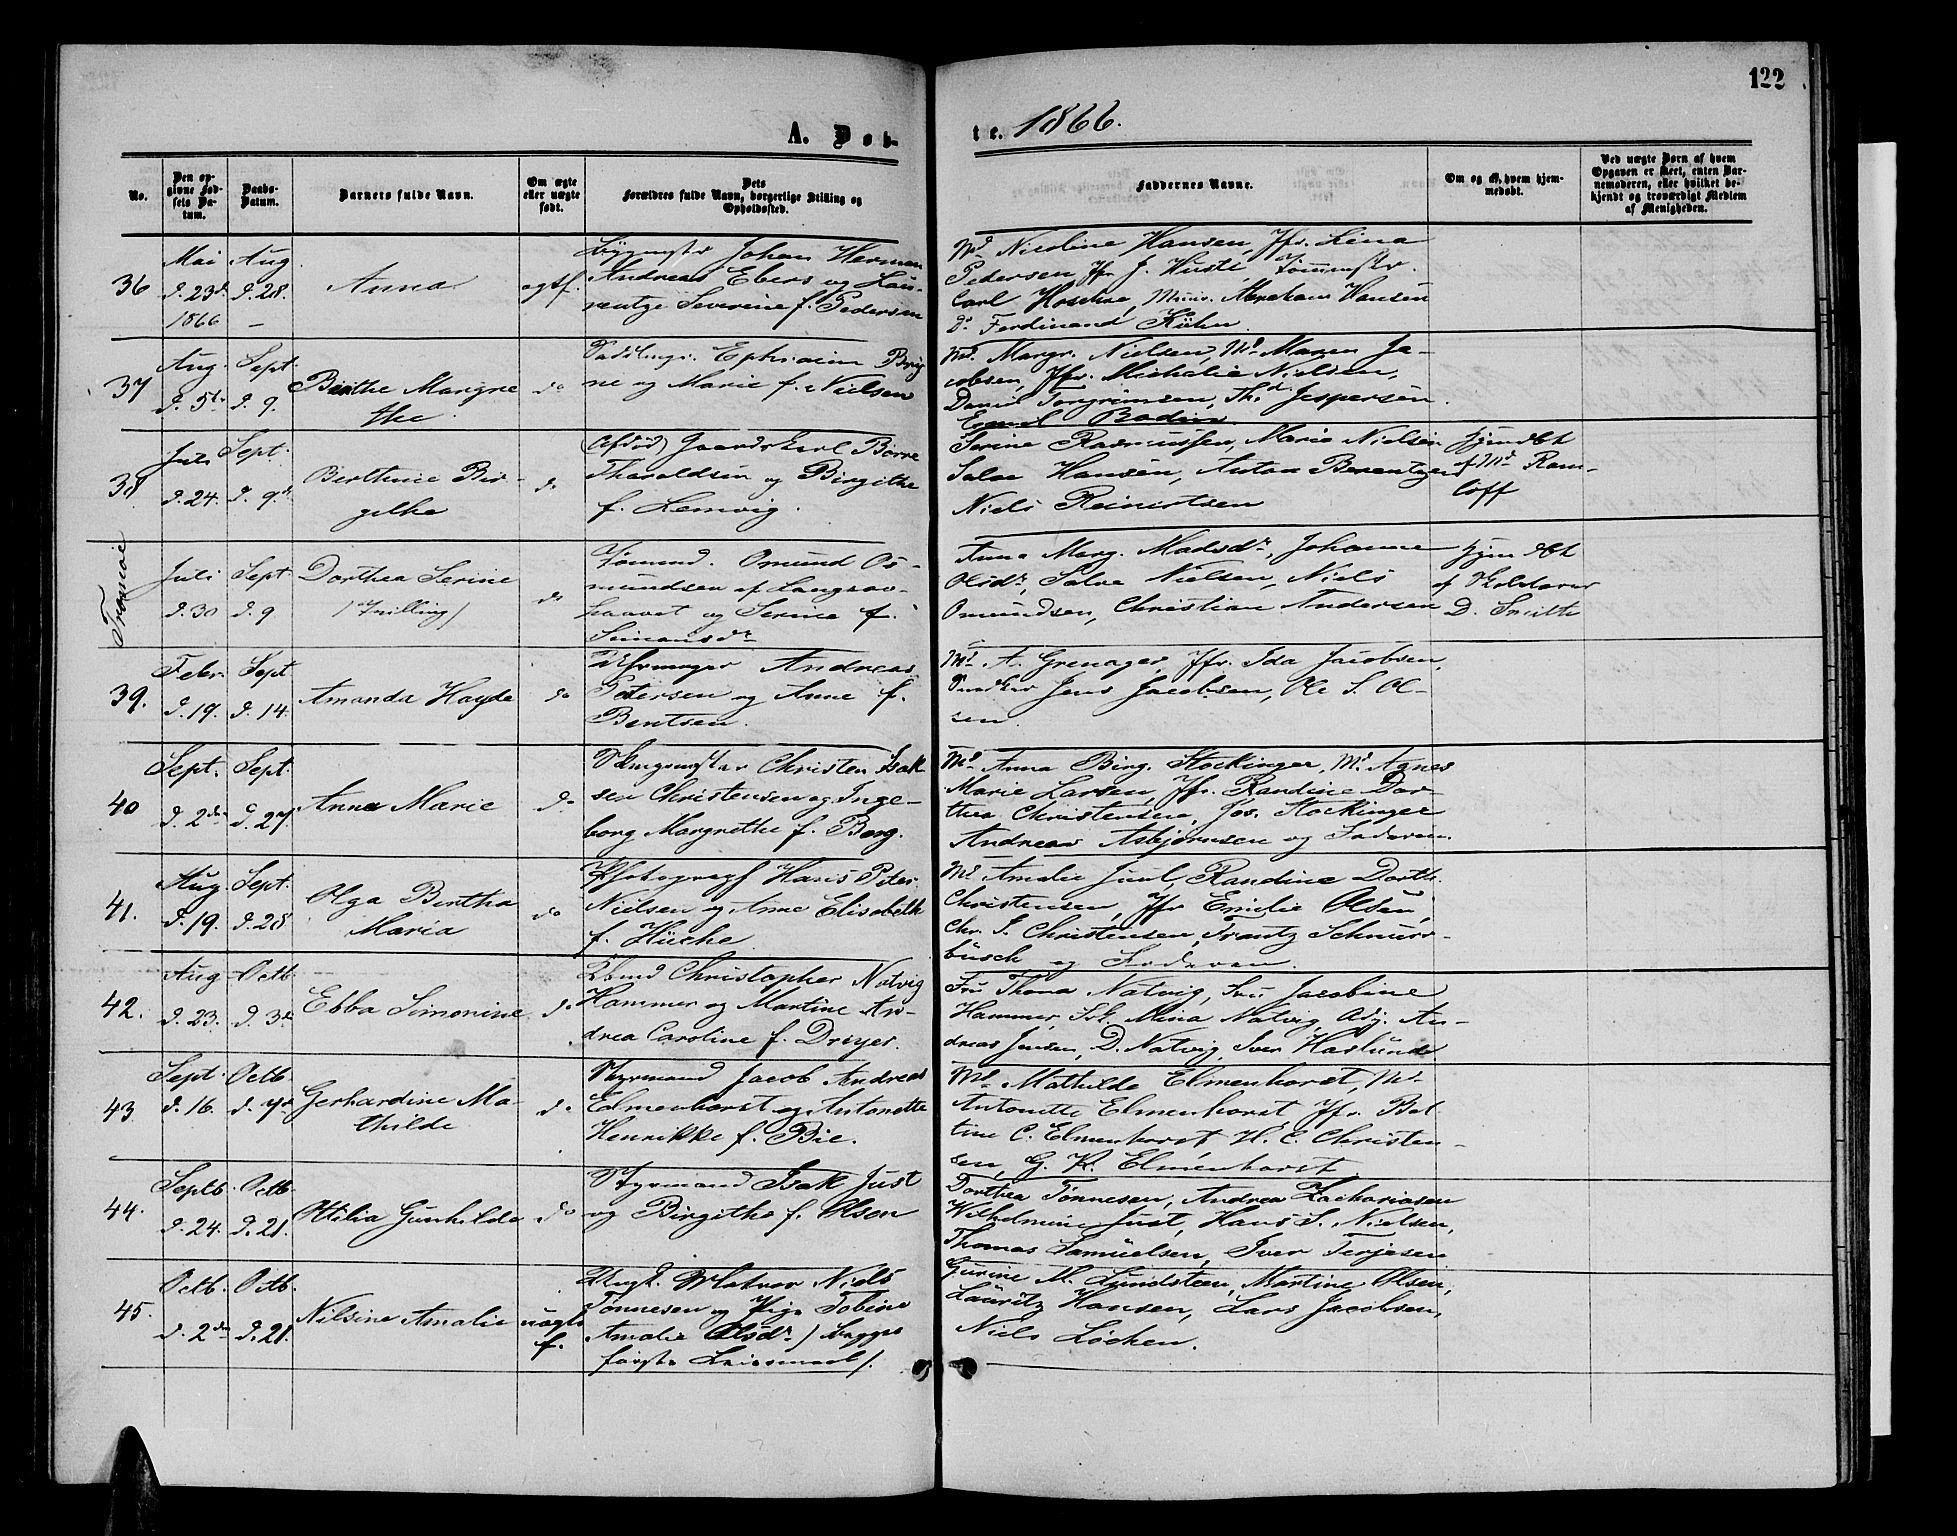 122
A. Døb-
te. 1866.
No.
Den op-
givne Fød-
sels Da-
tum.
Daabs-
Datum.
Barnets fulde Navn.
Om ægte
eller uægte
født.
Dets
Forældres fulde Navn, borgerlige Stilling og
Opholdssted.
Faddernes Navne.
Om og af hvem hjem-
medøbt.
Ved uægte Børn af hvem
Opgaven er skeet, enten Bar-
nemoderen, eller hvilket be-
kjendt og troværdigt Medlem
af Menigheden.
36
Mai
d. 23d
1866
Aug.
d. 28.
Anna
ægtf.
Johan Herman
Andreas Ebers og Lau-
rentze Severine f. Pedersen
Md Nicoline Hansen, Jfr. Lina
Pedersen Jfr J. Husti,
Carl Abraham Hansen
do Ferdinand Kühn.
37
Aug.
d. 5te
Sept.
d. 9.
Berthe Margre
the.
do
Ephraim Bryg
ne og Marie f. Nielsen
Md. Margr. Nielsen, Md Maren Ja-
cobsen, Jfr. Michalie Nielsen,
Daniel Torgrimsen, Th. Jespersen.
Emil Bodin.
38
Juli
d. 24.
Sept.
d. 9de
Berthinie Bir-
githe
do
(Afdød) Gaardskarl Børre
Tharaldsen og Birgithe
f. Lemvig.
Serine Rasmussen, Marie Nielsen
Salve Hansen, Anton Berentzen
Niels Reinertsen
hjemdbt
af Md Ram-
löff
Tromøe
Juli
d. 30
Sept
d. 9
Dorthea Serine
/Tvilling/
do
Tømmd. Omund Os-
mundsen af Langsæv-
haavet og Serine f.
Simonsdr
Anna Marg. Madsdr, Johanne
Olsdr, Salve Nielsen, Niels
Omundsen, Christian Andersen
hjemdbt
af Skolelærer
D. Smith
39.
Febr.
d. 19.
Sept
d. 14.
Amanda Hayde
do
Uhrmager Andreas
Petersen og Anne f.
Bentsen.
Md A. Grenager, Jfr. Ida Jacobsen,
Snedker Jens Jacobsen, Ole S. Ol-
sen.
40
Sept.
d. 2den
Sept.
d. 27.
Anna Marie
do
Christen Isak
sen Christensen og Inge-
borg Margrethe f. Berg.
Md Anna Birg. Stockinger, Md Agnes
Marie Larsen, Jfr. Randine Dor-
thea Christensen, Jos. Stockinger
Andreas Asbjørnsen og Faderen.
41.
Aug.
d. 19.
Sept.
d. 28
Olga Bertha
Maria
do
Photograf Hans Peter
Nielsen og Anne Elisabeth
f. Hüche
Md Amalie Juul, Randine Dorth.
Christensen, Jfr Emilie Olsen,
Chr. I. Christensen, Frantz Schnurr-
busch og Faderen.
42.
Aug
d. 23.
Octb.
d. 3d
Ebba Simonine
do
Kbmd Christopher Natvig
Hammer og Martine An-
drea Caroline f. Dreyer.
Fru Thona Natvig, Fru Jacobine
Hammer, Frk. Mina Natvig, Adj. An-
dreas Jensen, D. Natvig, Iver Haslund
43
Sept.
d. 16.
Octb.
d. 7d
Gerhardine Ma-
thilde
do
Styrmand Jacob Andreas
Eelmenhorst og Antonette
Henrikke f. Bie.
Md Mathilde Elmenhorst, Md.
Antonette Elmenhorst Jfr. Bol-
tine C. Elmenhorst, H. C. Christen-
sen, G. K. Elmenhorst
44.
Septb.
d. 24.
Octb.
d. 21.
Ottilia Gunhilde
do
Styrmand Isak Just
og Birgithe f. Olsen
Dorthea Tønnesen, Andrea Zachariasen
Wilhelmine Just, Hans S. Nielsen,
Thomas Samuelsen, Iver Terjesen
45.
Octb.
d. 2den
Octb.
d. 21.
Nilsine Amalie
uægte
f.
Ungk. Matros Niels
Tønnesen og Pige Tobine
Amalie Olsdr / begges
første Leiermaal /.
Gurine M. Lundsteen, Martine Olsen,
Lauritz Hansen, Lars Jacobsen,
Niels Løcken.